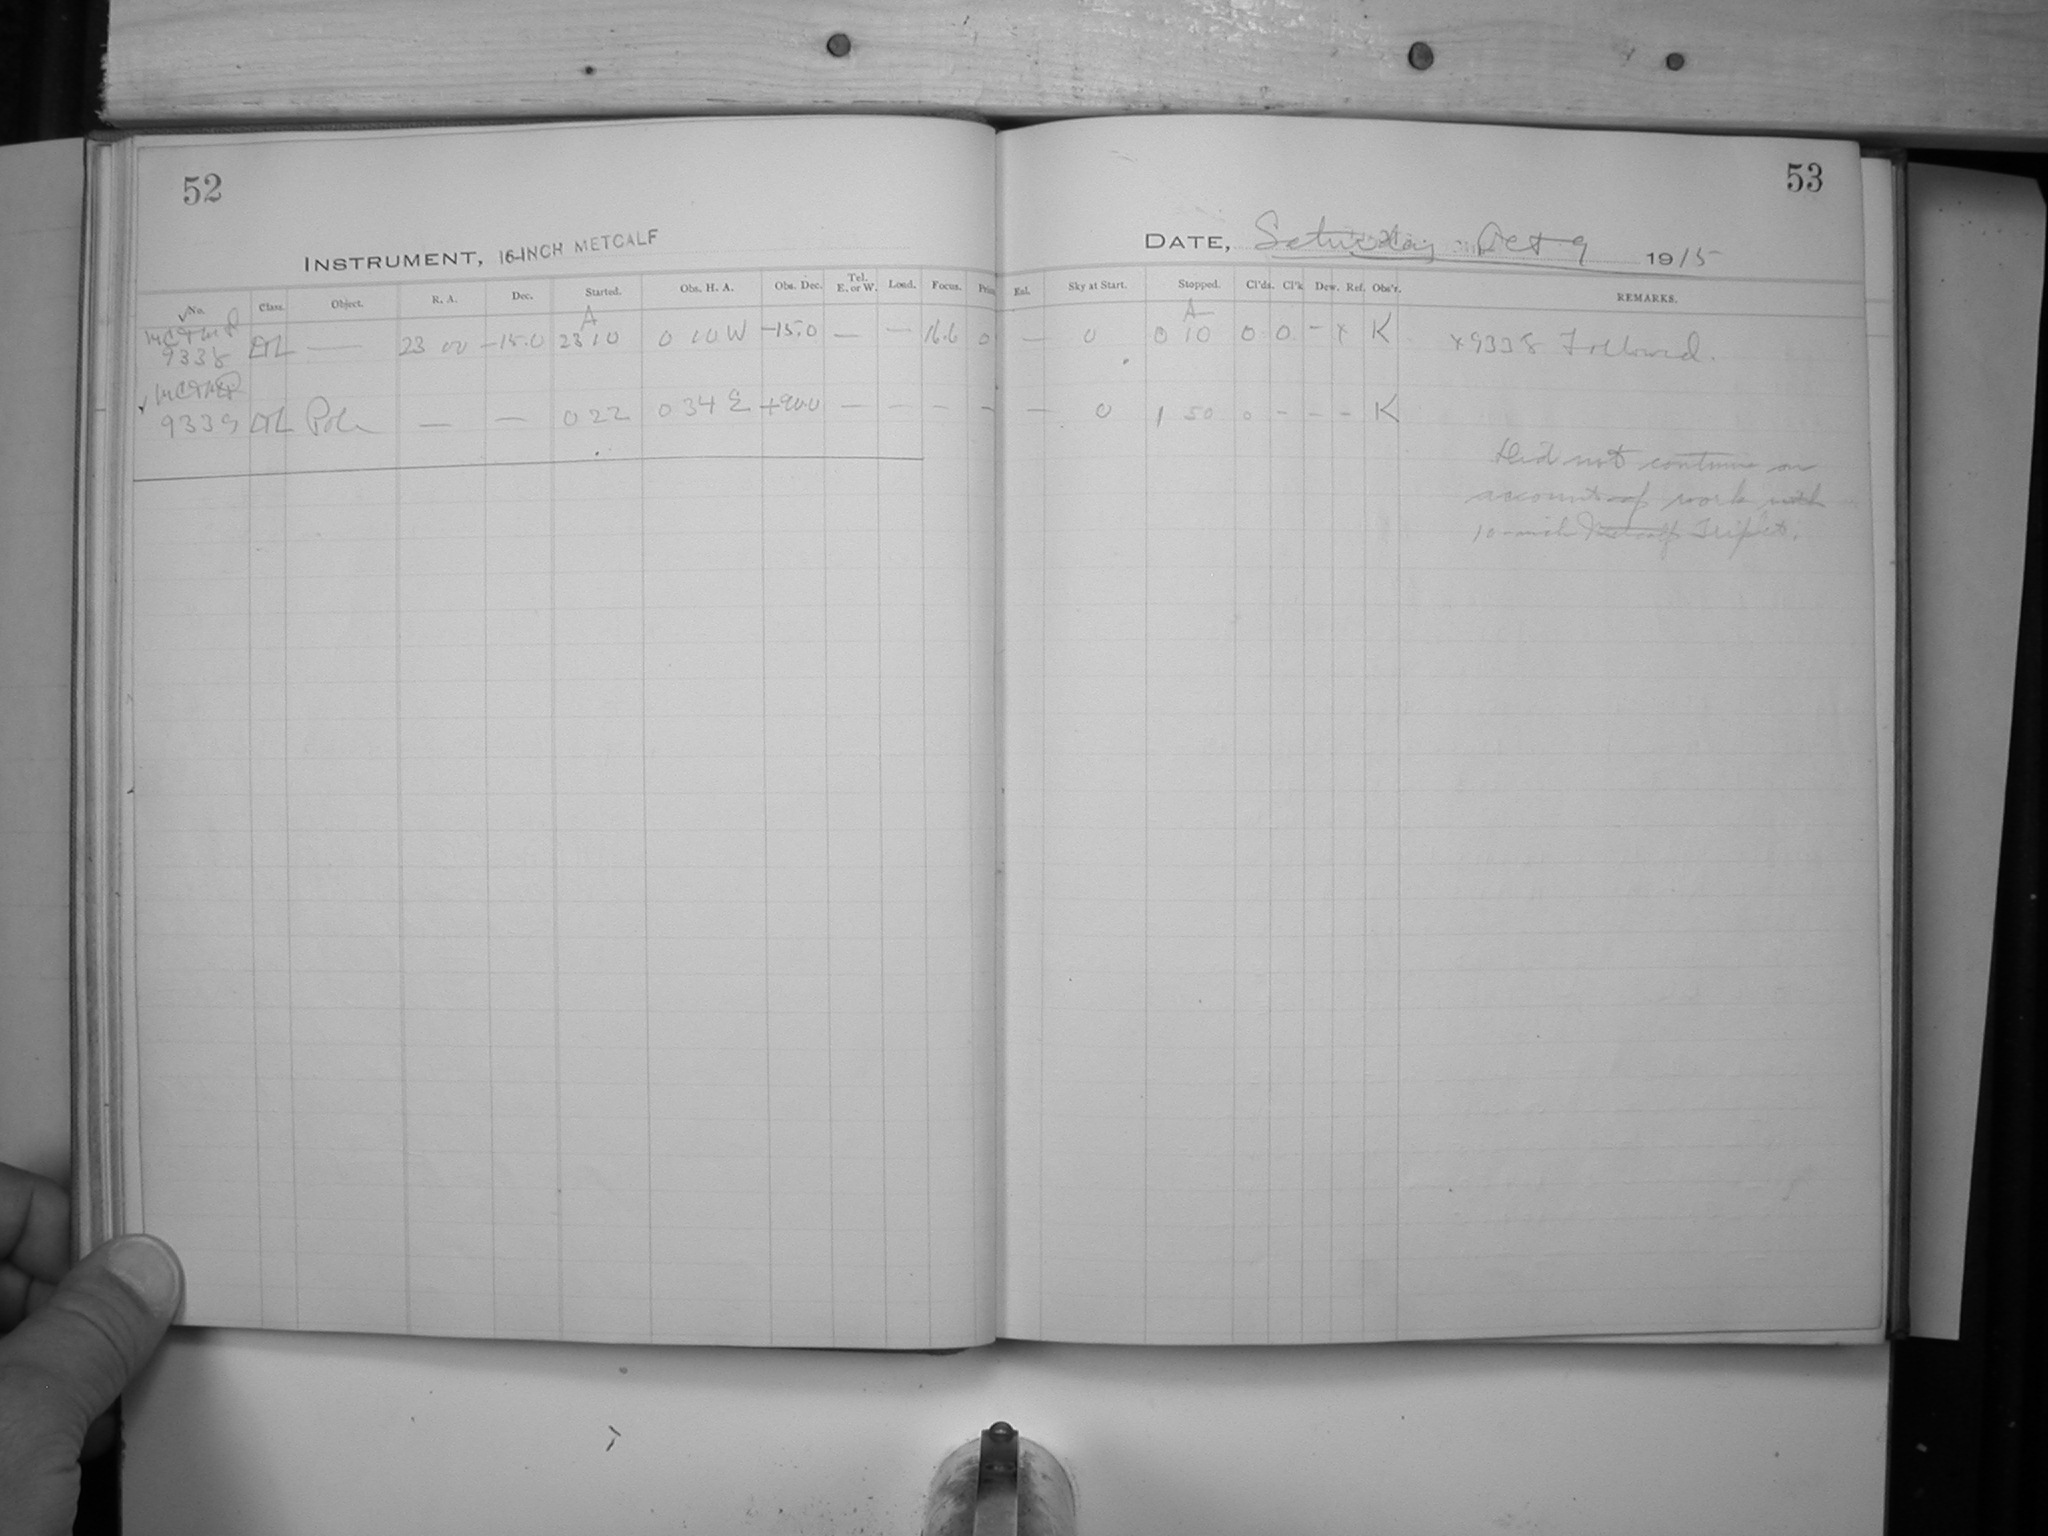 52
53
INSTRUMENT, 16-INCH METCALF
DATE, Saturday Oct 9 1915
No. Class. Object. R. A. Dec. Started. Obs. H. A. Obs. Dec. Tel. E. or W. Load. Focus. Prism Exl. Sky at Start. Stopped. Cl'ds. Cl'k Dew. Ref. Obs'r. REMARKS.
A A
9338 — 23 00 -15.0 23 10 0 10 W -15.0 — — 16.6 0 — 0 0 10 0 0 - x K x 9338 Followed.
9339 Pole — — 0 22 0 34 E +90.0 — — - - — 0 1 50 0 - - - K
Did not continue on
account of work with
10-inch Metcalf Triplet.